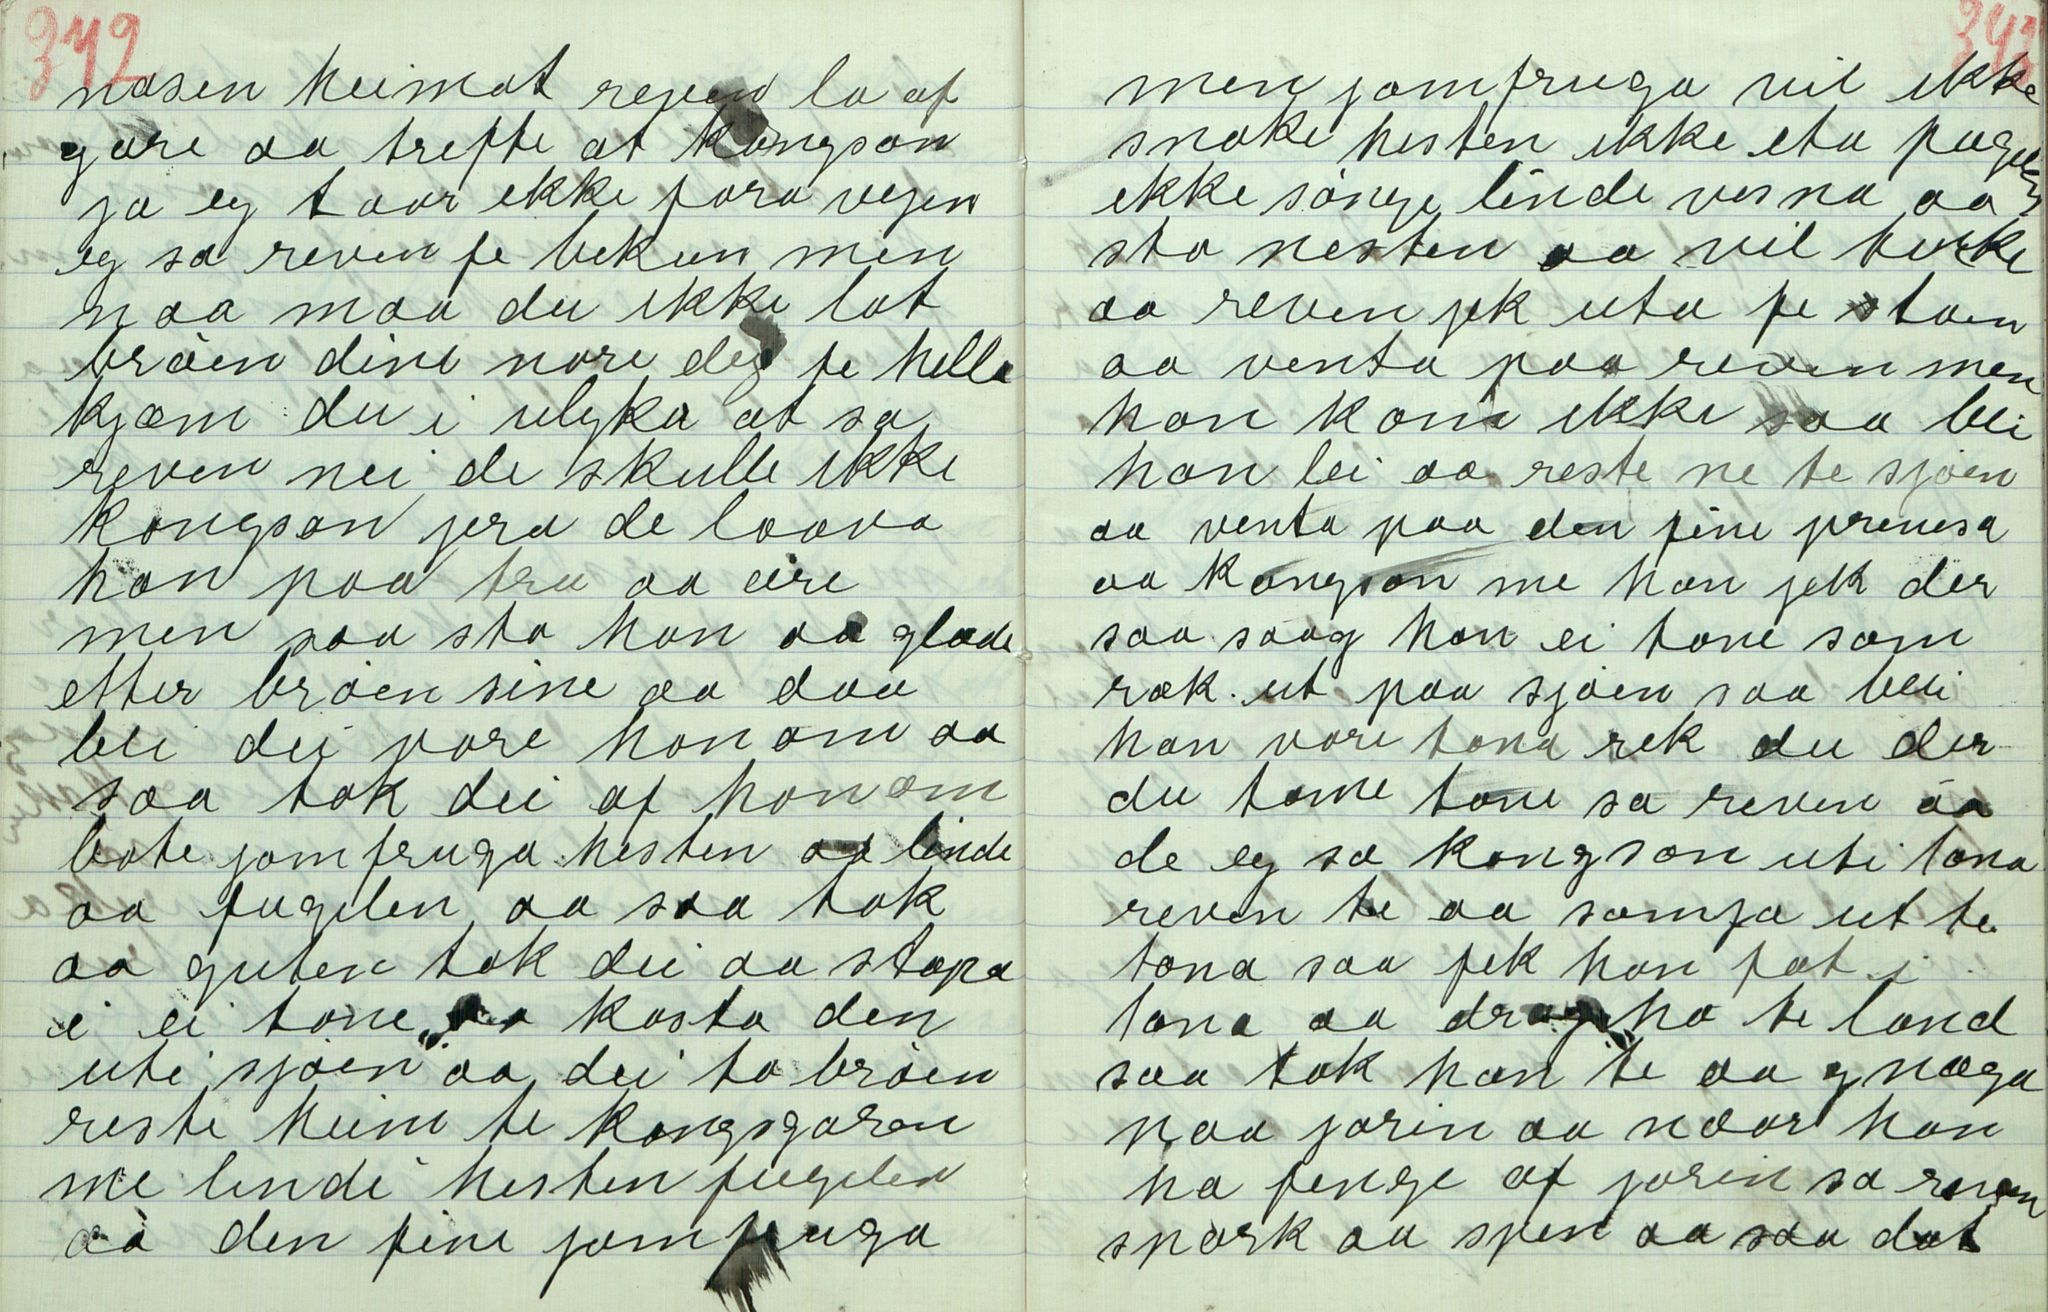 342
nasen heimat reven la af
gare aa trefte at kongson
ja eg taar ikke fara vegen
eg sa reven fe bekun men
naa maa du ikke lat
bröen dine nare deg te hella
kjæm du i ulyka at sa
reven nei de skulle ikke
kongson jera de laava
han paa tru aa ære
men saa sto han aa glade
etter bröen sine aa daa
blei dei vare honom aa
saa tok dei af honom
bote jomfruga hesten aa linde
aa fugelen aa saa tok
aa guten tok dei aa stapa
i ei tone aa kasta den
uti sjöen aa dei to bröen
reste heim te kongsgaren
me linde hesten fugelen
aa den fine jomfruga
343
men jomfruga vil ikke
snake hesten ikke eta fugelen
ikke sönge linde vesna aa
sto nesten aa vil turke
aa reven jek uta fe staen
aa venta paa reven men
han kom ikke saa blei
han lei aa reste ne te sjöen
aa venta paa den fine prinsesa
aa kongson me han jek der
saa saag han ei tone som
rak ut paa sjöen saa blei
han vare tona rek du der
du tome tone sa reven aa
de eg sa kongson uti tona
reven te aa somja ut te
tona saa fek han fat i
tona aa drog ho te land
saa tok han te aa gnaga
paa jorin aa naar han
ha fenge af jorin sa reven
spark aa spen aa saa dat